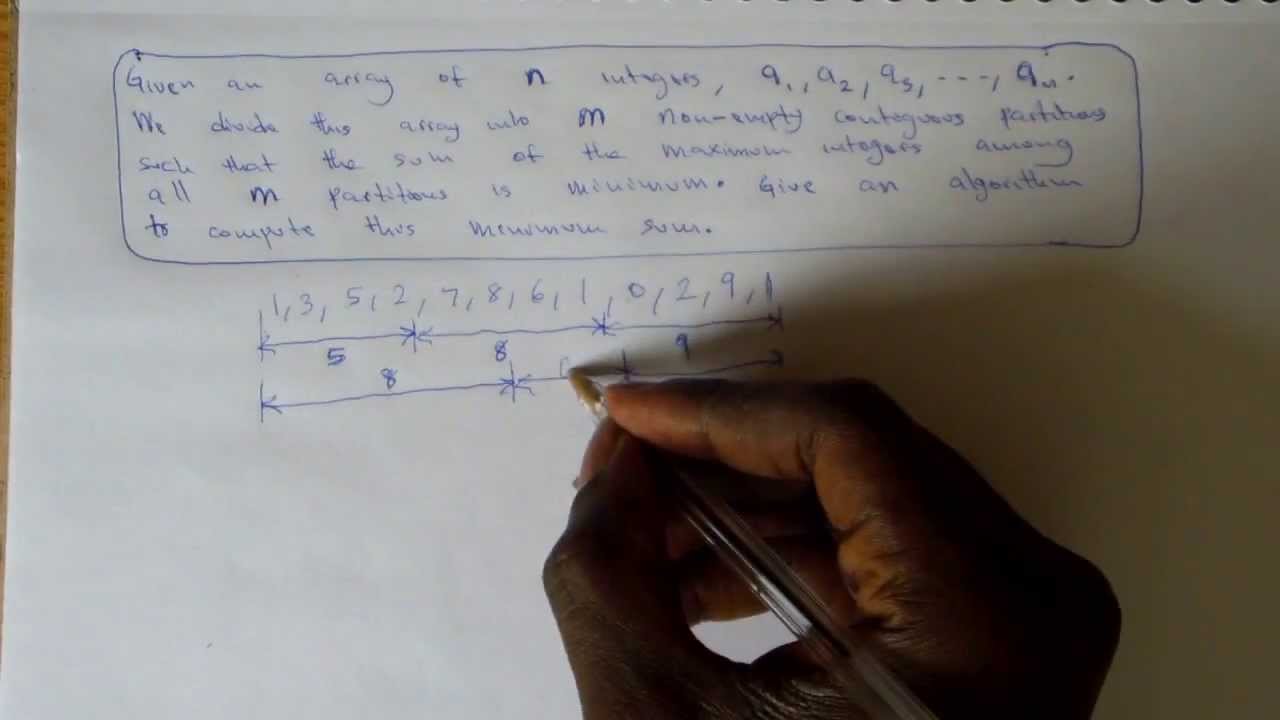 Given an array of n integers, a1, a2, a3, ---, an.
We divide this array into m non-empty contiguous partitions
such that the sum of the maximum integers among
all m partitions is minimum. Give an algorithm
to compute this minimum sum.
1, 3, 5, 2, 7, 8, 6, 1, 0, 2, 9, 1
5 8 9
8